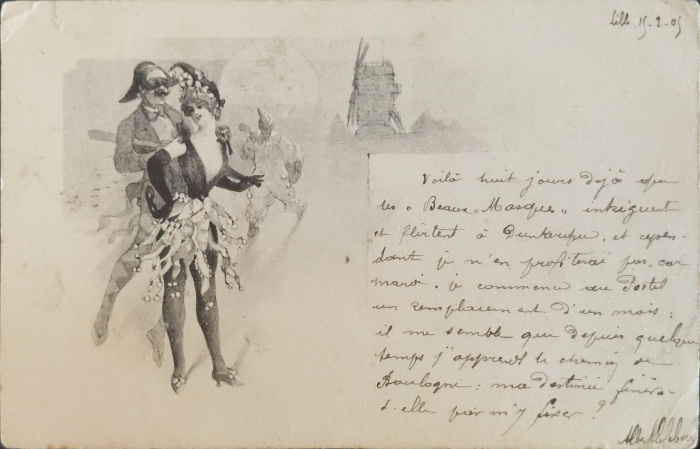 Lille 15-2-05
Voilà huit jours déjà que
les « Beaux Masques » intriguent
et flirtent à Dunkerque, et cepen-
dant je n'en profiterai pas, car
mardi, je commence au Portel
un remplacement d'un mois :
il me semble que depuis quelque
temps j'apprends le chemin de
Boulogne : ma destinée finira-
t-elle par m'y fixer ?